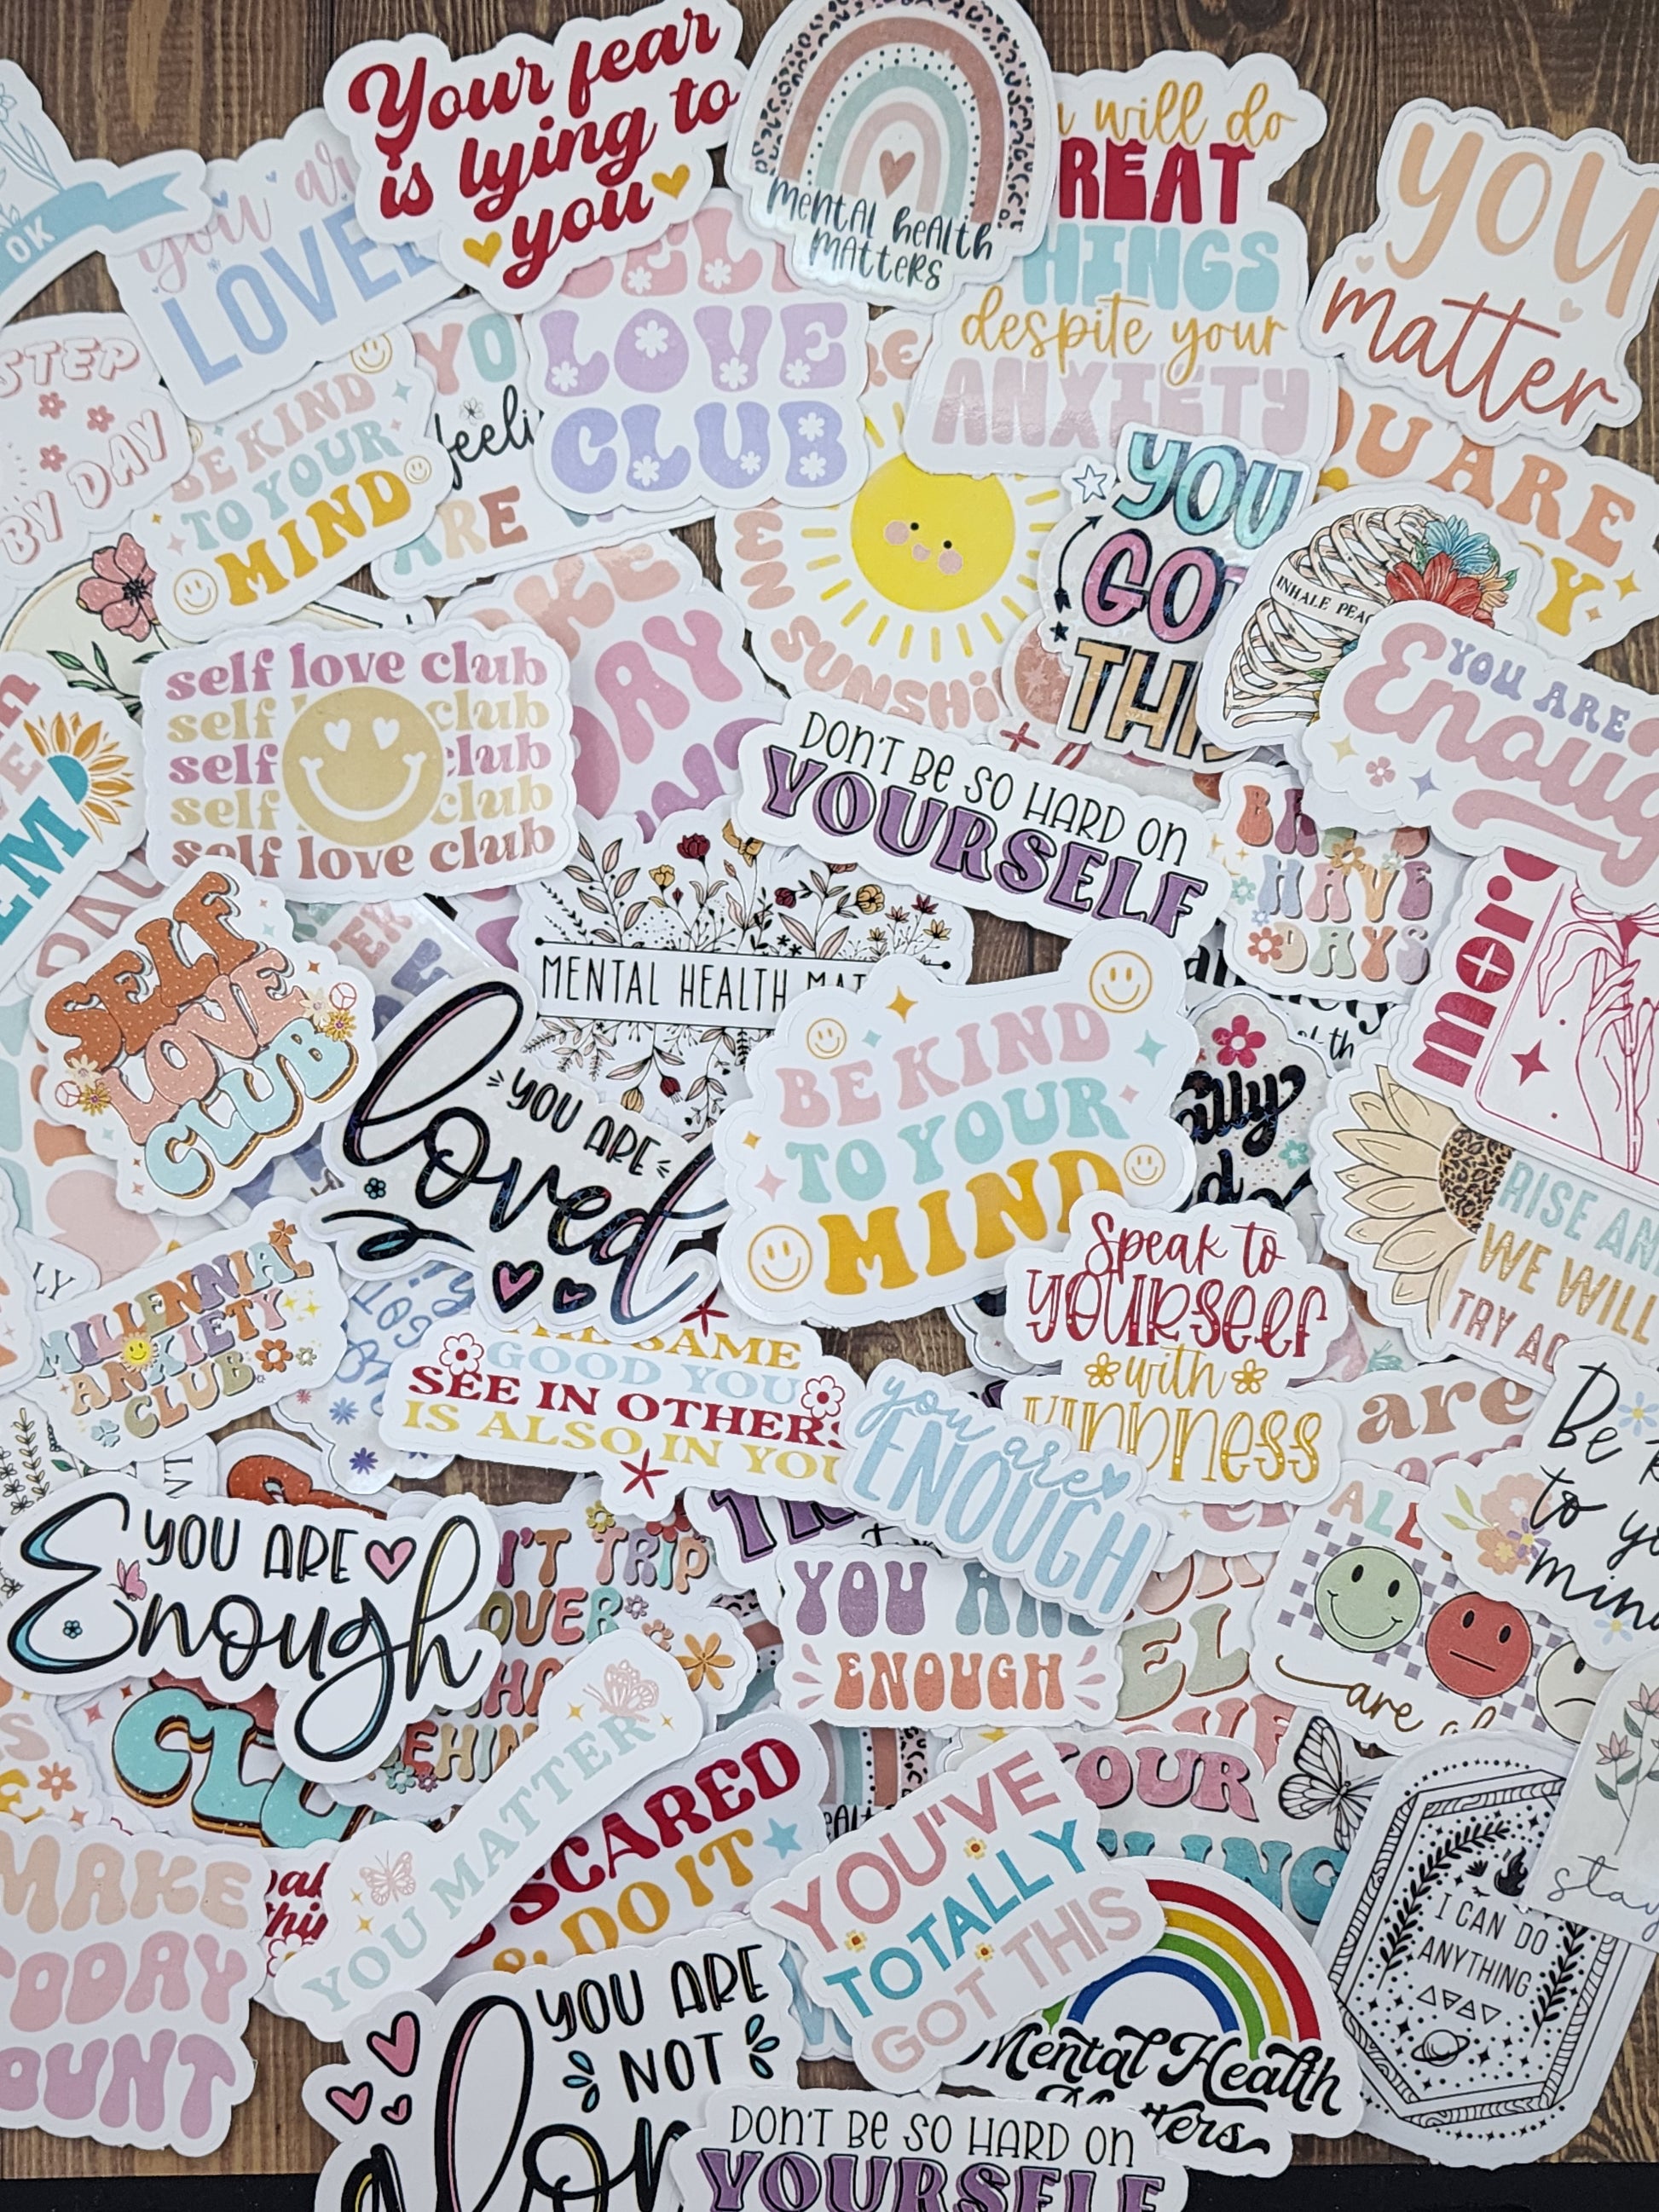 Your fear
is lying to
you
mental health
matters
will do
REAT
HINGS
despite your
ANXIETY
YOU
matter
OK
you ar
LOVE
SELF
LOVE
CLUB
STEP
BY DAY
BE KIND
TO YOUR
MIND
YO
feeli
ARE
SUNSHI
YOU
GOT
THIS
OU ARE
INHALE PEAC
YOU ARE
Enoug
self love club
self club
self club
self club
self love club
DAY
DON'T BE SO HARD ON
YOURSELF
HAVE
DAYS
mor
EM
SELF
LOVE
CLUB
MENTAL HEALTH MAT
YOU ARE
loved
BE KIND
TO YOUR
MIND
RISE AN
WE WILL
TRY AG
MILLENNIAL
ANXIETY
CLUB
SAME
GOOD YOU
SEE IN OTHERS
IS ALSO IN YOU
Speak to
YOURSELF
with
KINDNESS
you are
ENOUGH
are
Be k
to yo
mind
ALL
are
YOU ARE
Enough
N'T TRIP
OVER
EHIN
YOU AR
ENOUGH
EL
CLU
YOU MATTER
SCARED
& DO IT
YOU'VE
TOTALLY
GOT THIS
OUR
LING
I CAN DO
ANYTHING
stay
MAKE
TODAY
OUNT
YOU ARE
NOT
alon
Mental Health
Matters
DON'T BE SO HARD ON
YOURSELF